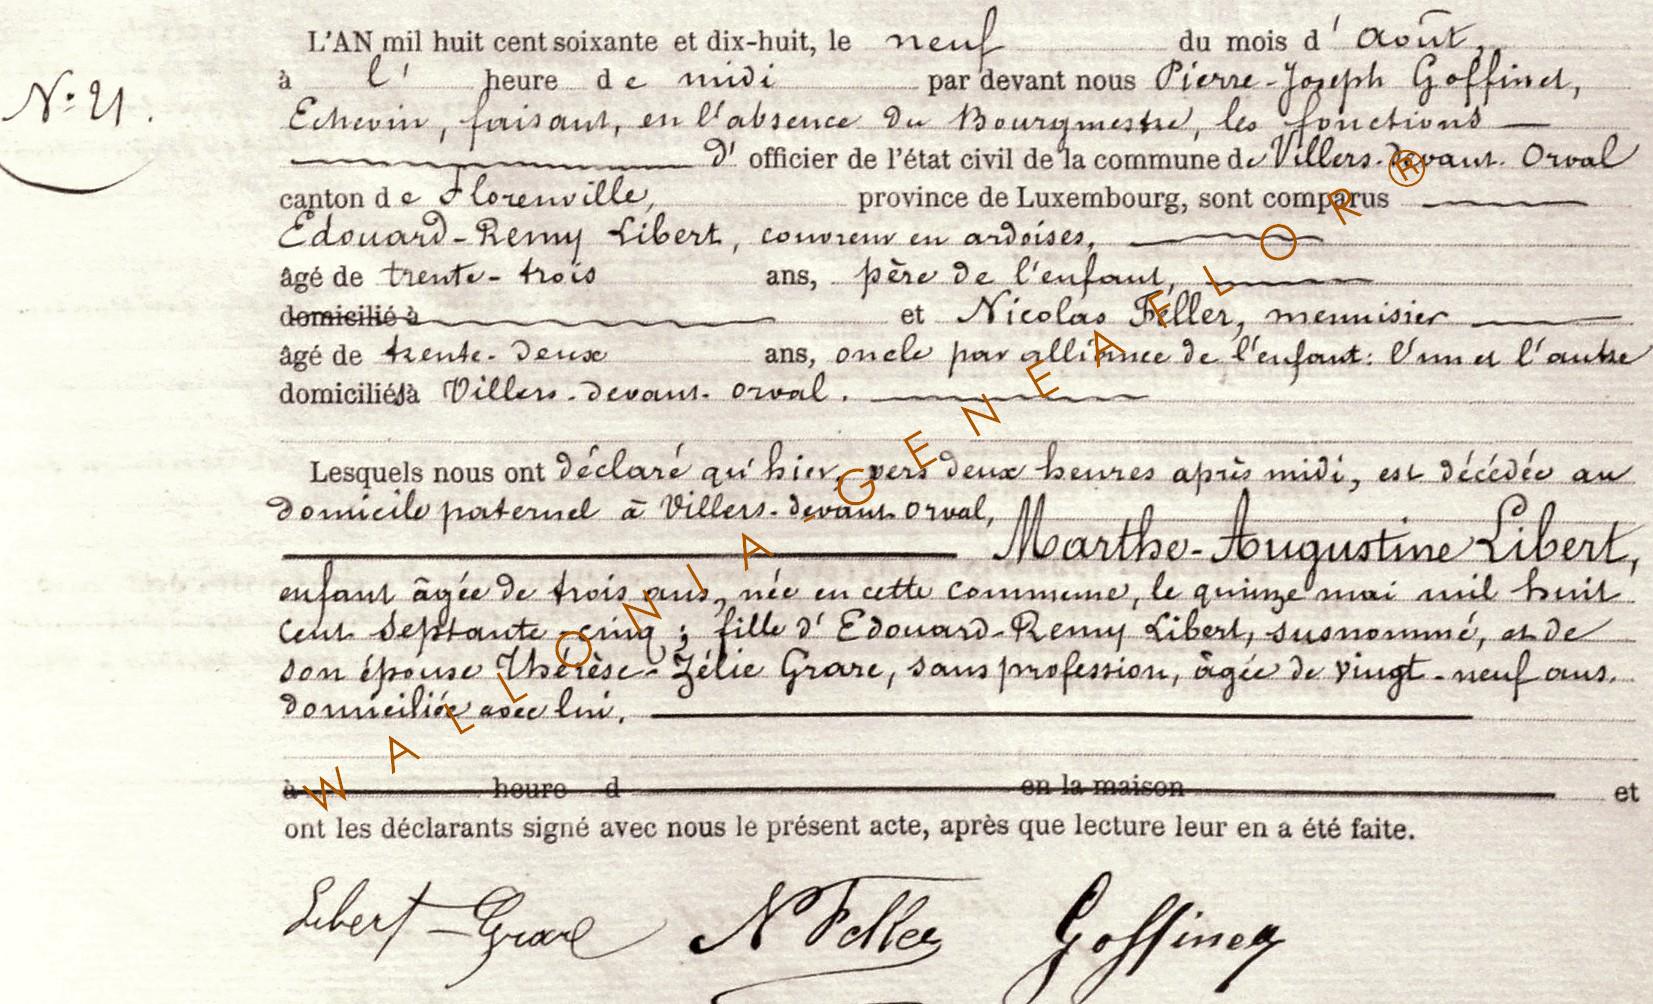 L'AN mil huit cent soixante et dix-huit, le neuf du mois d' Août,
à l' heure de midi par devant nous Pierre-Joseph Goffinet,
N° 21.
Echevin, faisant, en l'absence du Bourgmestre, les fonctions
d' officier de l'état civil de la commune de Villers-devant-Orval
canton de Florenville, province de Luxembourg, sont comparus
Edouard-Remy Libert, couvreur en ardoises,
âgé de trente-trois ans, père de l'enfant,
domicilié à et Nicolas Feller, menuisier
âgé de trente-deux ans, oncle par alliance de l'enfant: l'un et l'autre
domiciliés à Villers-devant-Orval.
Lesquels nous ont déclaré qu'hier, vers deux heures après midi, est décédée au
domicile paternel à Villers-devant-Orval,
Marthe-Augustine Libert,
enfant âgée de trois ans, née en cette commune, le quinze mai mil huit
cent septante-cinq; fille d'Edouard-Remy Libert, susnommé, et de
son épouse Thérèse-Zélie Grare, sans profession, âgée de vingt-neuf ans.
domiciliée avec lui.
à heure d en la maison et
ont les déclarants signé avec nous le présent acte, après que lecture leur en a été faite.
Libert-Grare N Feller Goffinet
WALLONIA-GENEAFLOR®